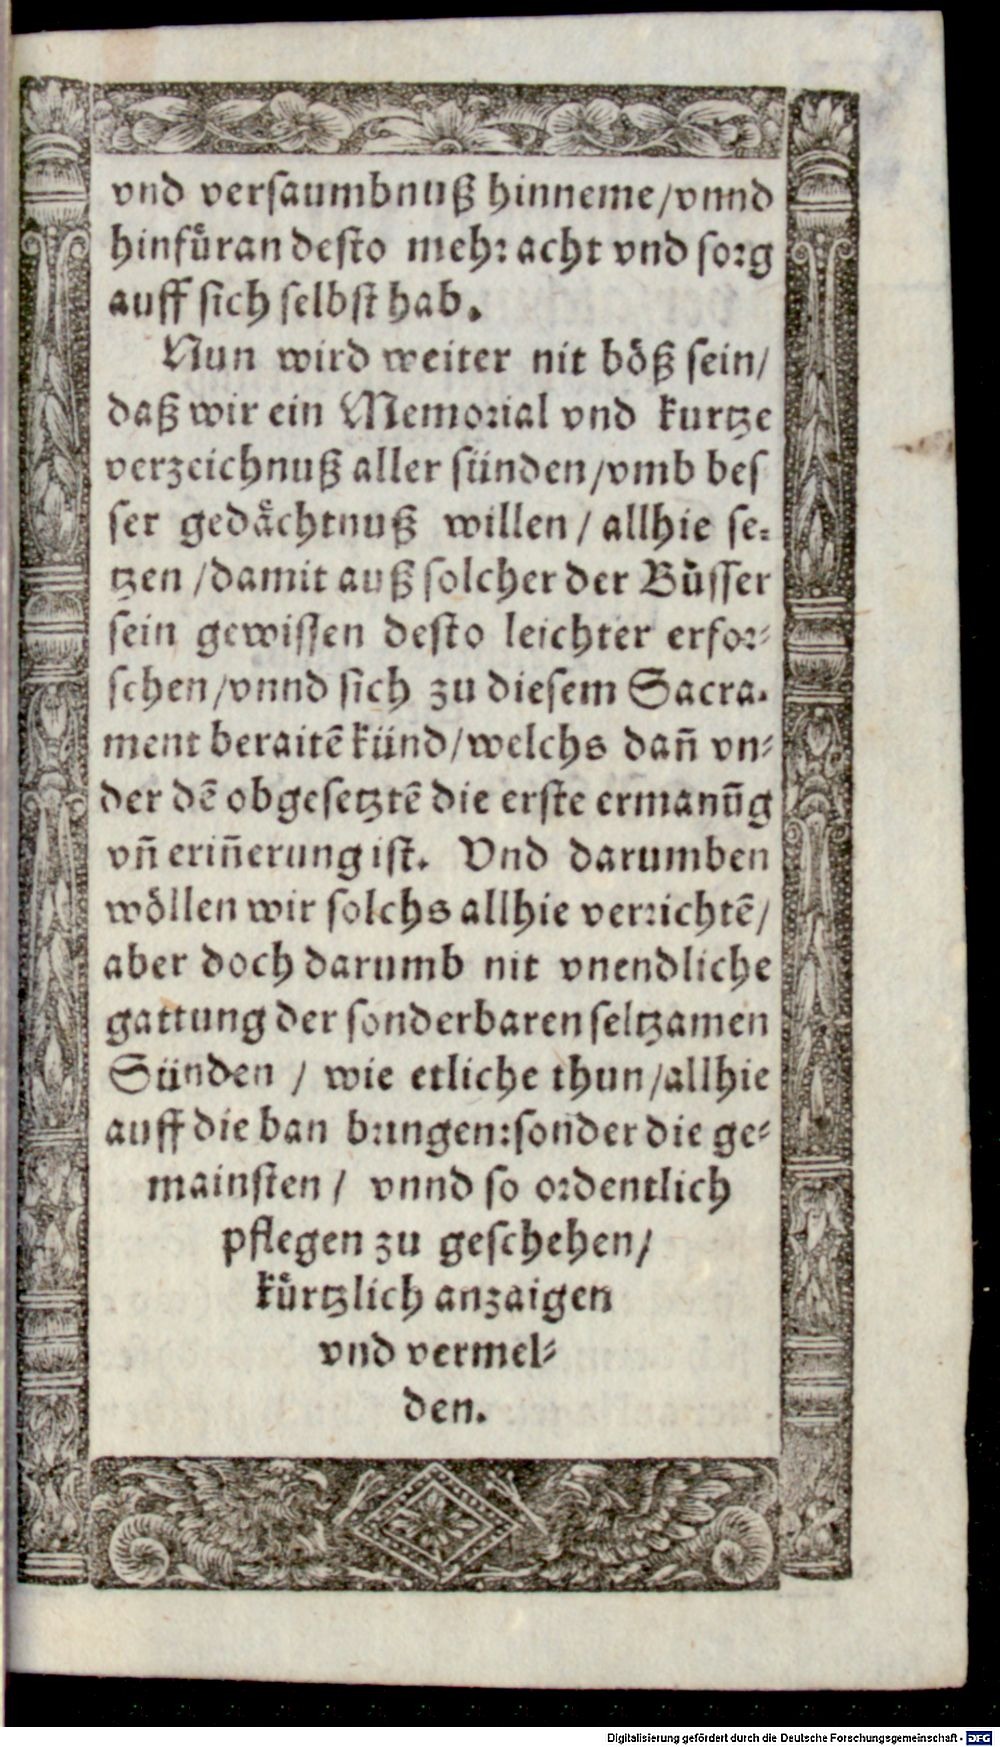 vnd versaumbnuß hinneme/vnnd
hinfuͤran desto mehr acht vnd sorg
auff sich selbst hab.
Nun wird weiter nit böß sein/
daß wir ein Memorial vnd kurtze
verzeichnuß aller sünden/vmb bes
ser gedaͤchtnuß willen/ allhie se⸗
tzen/damit auß solcher der Buͤsser
sein gewissen desto leichter erfor⸗
schen/vnnd sich zu diesem Sacra⸗
ment beraitẽ künd/welchs dañ vn⸗
der dẽ obgesetztẽ die erste ermanũg
vñ eriñerung ist. Vnd darumben
wöllen wir solchs allhie verrichtẽ/
aber doch darumb nit vnendliche
gattung der sonderbaren seltzamen
Sünden / wie etliche thun/allhie
auff die ban bringen:sonder die ge⸗
mainsten/ vnnd so ordentlich
pflegen zu geschehen/
kuͤrtzlich anzaigen
vnd vermel⸗
den.
Digitalisierung gefördert durch die Deutsche Forschungsgemeinschaft - DFG